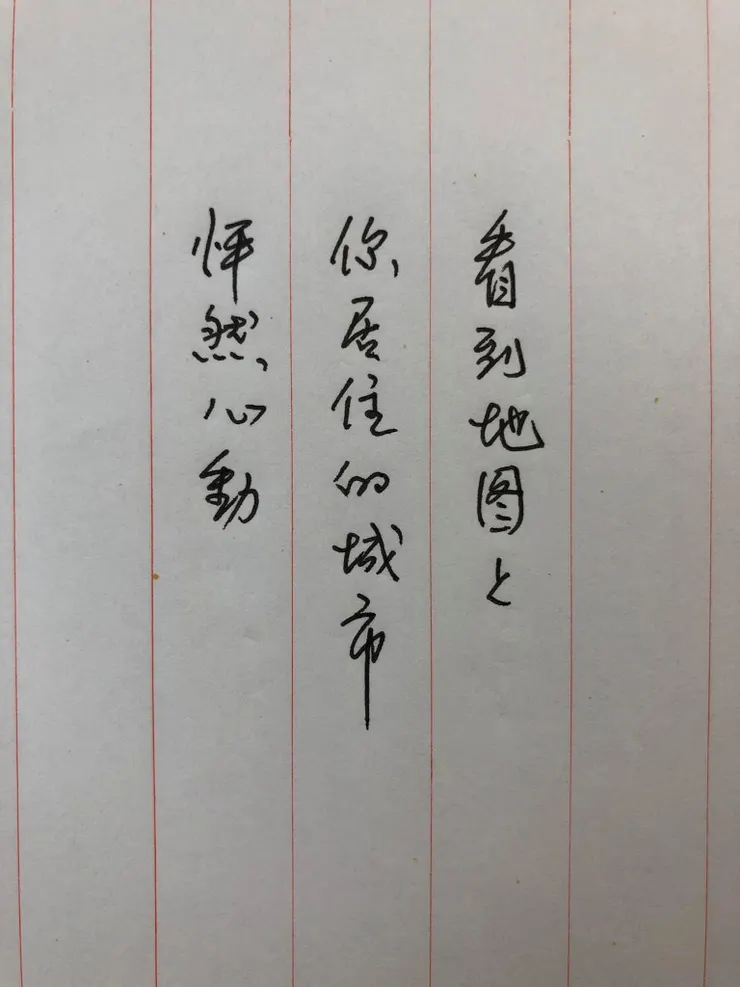 看到地图上
你居住的城市
怦然心動